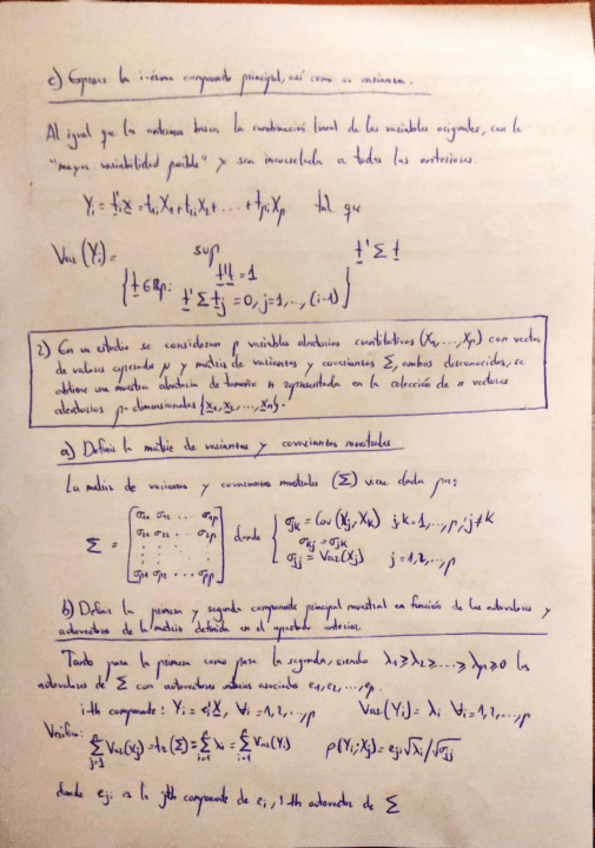 c) Expresar la i-ésima componente principal, así como su varianza.
Al igual que la anterior busca la combinación lineal de las variables originales, con la
"mayor variabilidad posible" y sea incorrelada a todas las anteriores.
Yi = t'i x = t1i X1 + t2i X2 + ... + tpi Xp tal que
Var (Yi) = sup t' Σ t
{ t ∈ Rp: t't = 1
t' Σ tj = 0, j=1,..., (i-1) }
2) En un estudio se consideran p variables aleatorias cuantitativas (X1,...,Xp) con vector
de valores esperados μ y matriz de varianzas y covarianzas Σ, ambos desconocidos, se
obtiene una muestra aleatoria de tamaño n representada en la colección de n vectores
aleatorios p-dimensionales {x1, x2, ..., xn}.
a) Definir la matriz de varianzas y covarianzas muestrales
La matriz de varianzas y covarianzas muestrales (Σ) viene dada por:
Σ = [ σ11 σ12 ... σ1p
σ21 σ22 ... σ2p
σp1 σp2 ... σpp ] donde { σjk = Cov (Xj, Xk) j,k=1,...,p; j≠k
σkj = σjk
σjj = Var(Xj) j=1,2,...,p
b) Definir la primera y segunda componente principal muestral en función de los autovalores y
autovectores de la matriz definida en el apartado anterior.
Tanto para la primera como para la segunda, siendo λ1 ≥ λ2 ≥ ... ≥ λp ≥ 0 los
autovalores de Σ con autovectores unitarios asociados e1, e2, ..., ep.
i-th componente: Yi = e'i X, ∀i=1,2,...,p Var(Yi) = λi ∀i=1,2,...,p
Verifica:
Σ Var(Xj) = tr(Σ) = Σ λi = Σ Var(Yi) ρ(Yi; Xj) = eji √λi / √σjj
donde eji is la jth componente de ei, i-th autovector de Σ